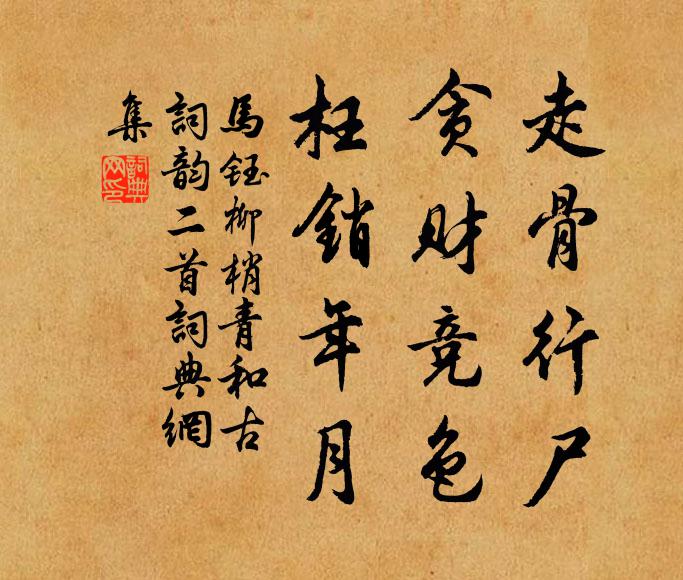 走骨行尸
貪財竞色
枉銷年月
馬鈺柳梢青和古
詞韵二首詞典網
集
詞典网印